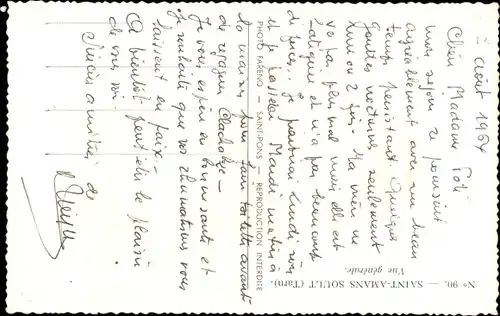 2 août 1964
Chère Madame Poli
mon séjour se poursuit
agréablement avec un beau
temps persistant. Quelques
gouttes nocturnes seulement
lundi ou 2 fois. Ma mère ne
va pas plus mal mais elle est
fatiguée et n'a pas beaucoup
de forces. Je partirai lundi soir
et je passerai Mardi matin à
la maison pour faire toilette avant
de regagner
Je vous espère en bonne santé et
je souhaite que vos rhumatismes vous
laissent en paix.
A bientôt peut-être le plaisir
de vous voir.
Sincères amitiés de
Nº 90. — SAINT-AMANS SOULT (Tarn).
Vue générale.
PHOTO FARENQ — SAINT-PONS — REPRODUCTION INTERDITE